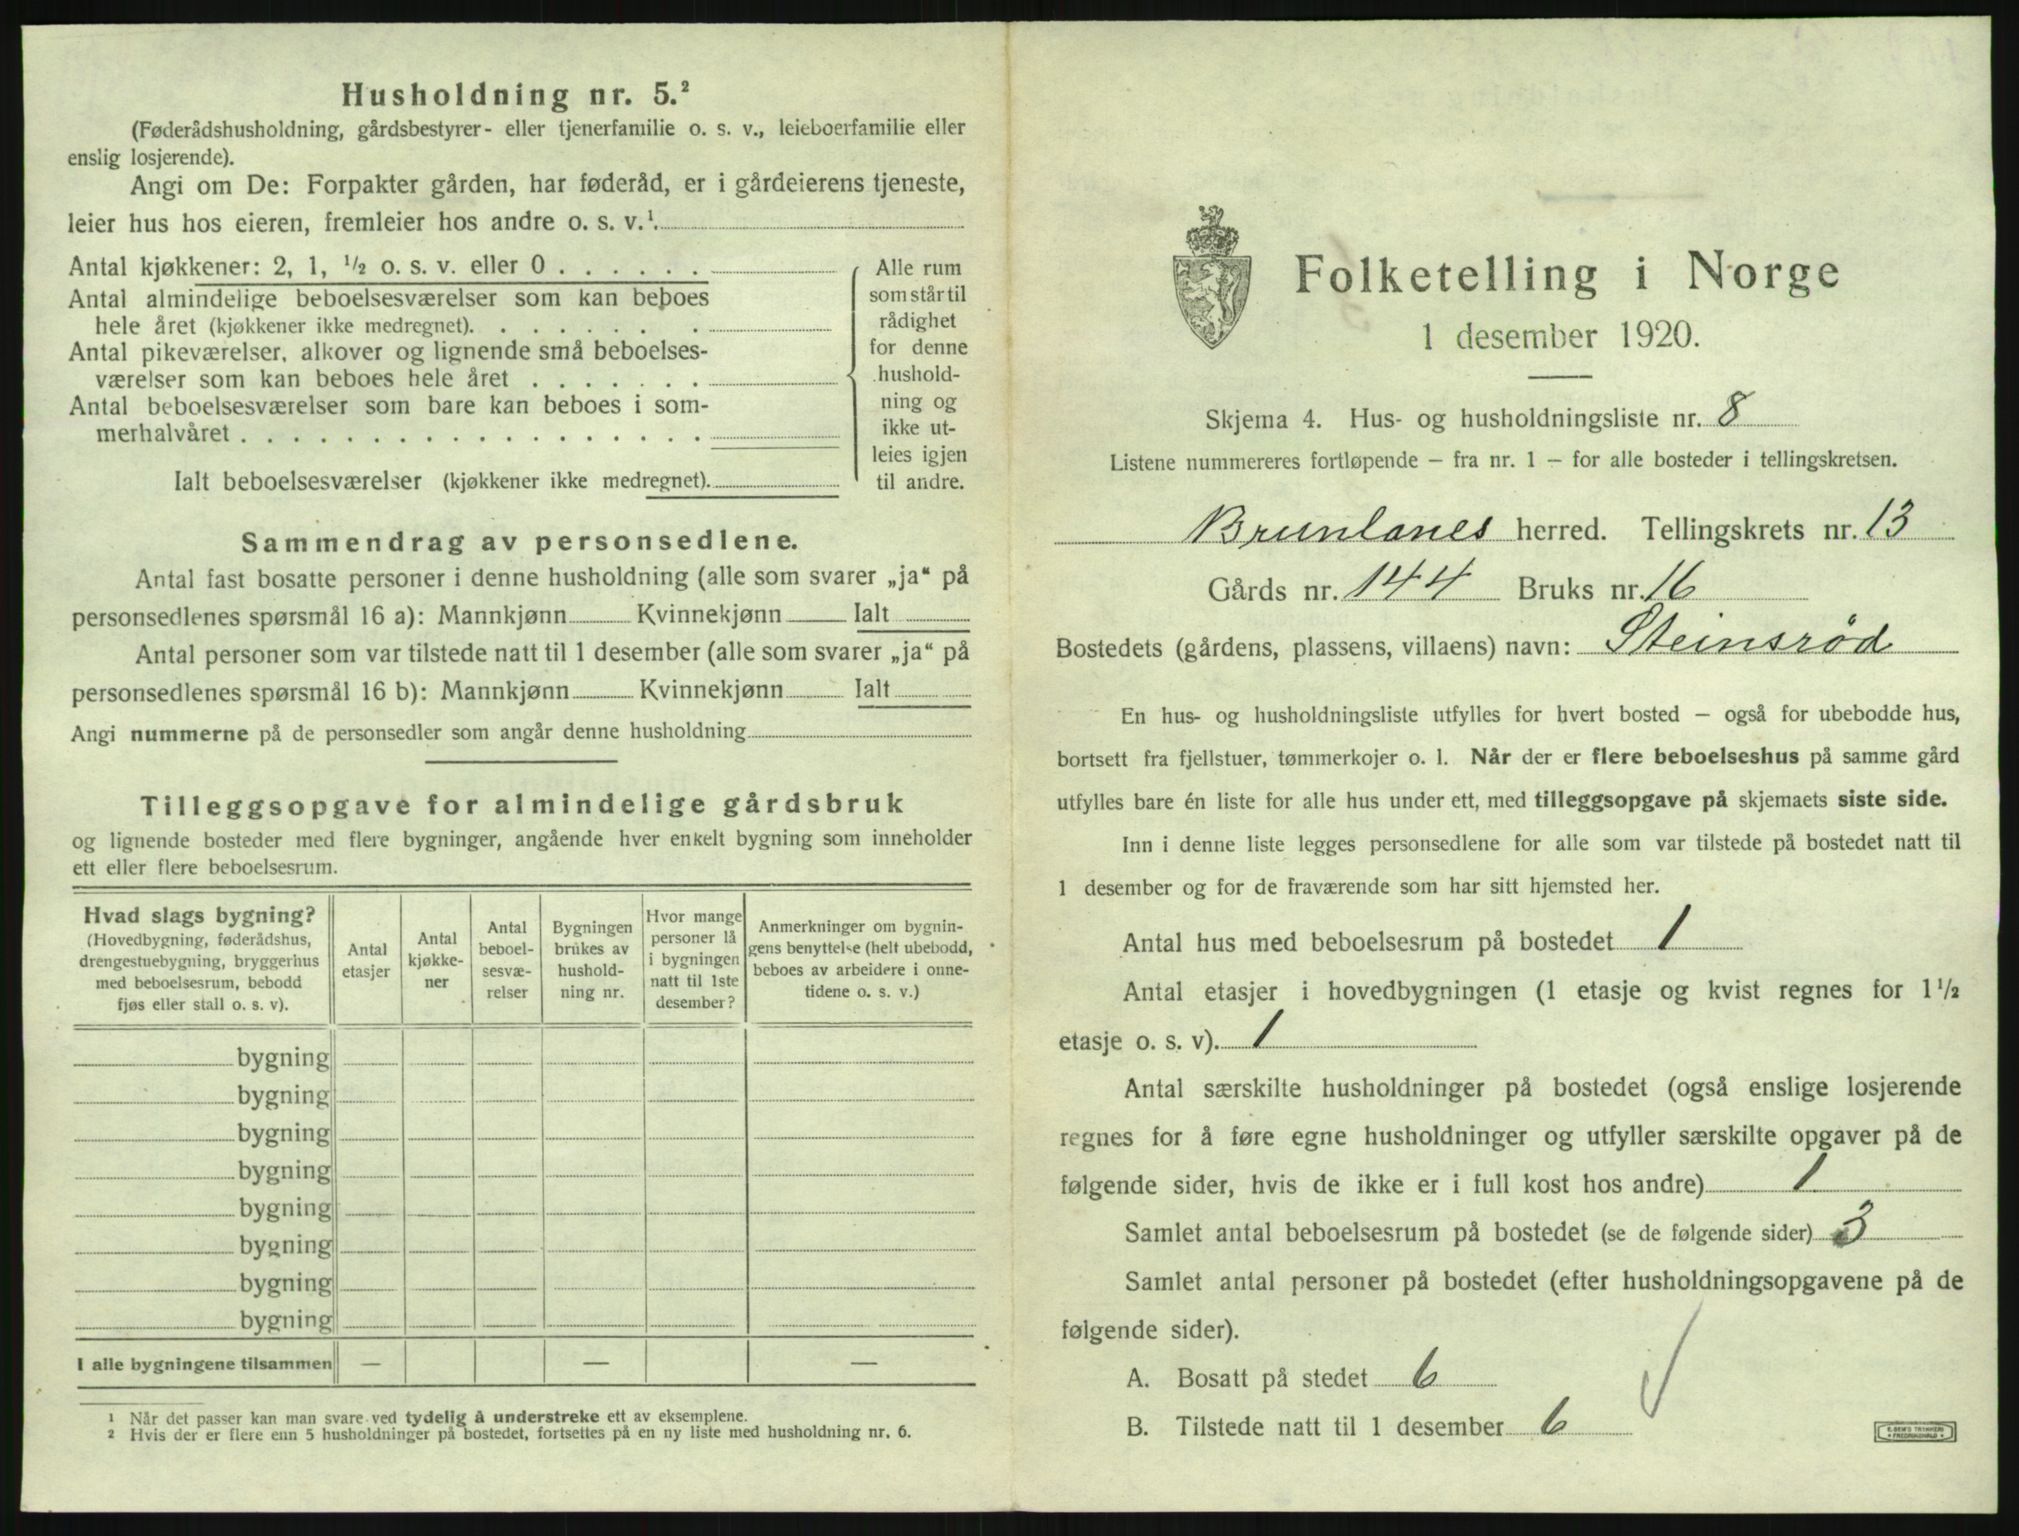 Husholdning nr. 5.²
(Føderådshusholdning, gårdsbestyrer- eller tjenerfamilie o. s. v., leieboerfamilie eller
enslig losjerende).
Angi om De: Forpakter gården, har føderåd, er i gårdeierens tjeneste,
leier hus hos eieren, fremleier hos andre o. s. v.¹.
Antal kjøkkener: 2, 1, ½ o. s. v. eller 0 . . . . . .
Antal almindelige beboelsesværelser som kan beboes
hele året (kjøkkener ikke medregnet). . . . . . . .
Antal pikeværelser, alkover og lignende små beboelses-
værelser som kan beboes hele året . . . . . . .
Antal beboelsesværelser som bare kan beboes i som-
merhalvåret . . . . . . . . . . . . . . . . . .
Ialt beboelsesværelser (kjøkkener ikke medregnet).
Alle rum
som står til
rådighet
for denne
hushold-
ning og
ikke ut-
leies igjen
til andre.
Sammendrag av personsedlene.
Antal fast bosatte personer i denne husholdning (alle som svarer „ja“ på
personsedlenes spørsmål 16 a): Mannkjønn Kvinnekjønn Ialt
Antal personer som var tilstede natt til 1 desember (alle som svarer „ja“ på
personsedlenes spørsmål 16 b): Mannkjønn Kvinnekjønn Ialt
Angi nummerne på de personsedler som angår denne husholdning
Tilleggsopgave for almindelige gårdsbruk
og lignende bosteder med flere bygninger, angående hver enkelt bygning som inneholder
ett eller flere beboelsesrum.
Hvad slags bygning?
(Hovedbygning, føderådshus,
drengestuebygning, bryggerhus
med beboelsesrum, bebodd
fjøs eller stall o. s. v).
Antal
etasjer
Antal
kjøkke-
ner
Antal
beboel-
sesvæ-
relser
Bygningen
brukes av
hushold-
ning nr.
Hvor mange
personer lå
i bygningen
natt til 1ste
desember?
Anmerkninger om bygnin-
gens benyttelse (helt ubebodd,
beboes av arbeidere i onne-
tidene o. s. v.)
bygning
bygning
bygning
bygning
bygning
bygning
bygning
bygning
I alle bygningene tilsammen — — —
1 Når det passer kan man svare ved tydelig å understreke ett av eksemplene.
2 Hvis der er flere enn 5 husholdninger på bostedet, fortsettes på en ny liste med husholdning nr. 6.
Folketelling i Norge
1 desember 1920.
Skjema 4. Hus- og husholdningsliste nr. 8
Listene nummereres fortløpende – fra nr. 1 – for alle bosteder i tellingskretsen.
Brunlanes herred. Tellingskrets nr. 13
Gårds nr. 144 Bruks nr. 16
Bostedets (gårdens, plassens, villaens) navn: Steinsrød
En hus- og husholdningsliste utfylles for hvert bosted – også for ubebodde hus,
bortsett fra fjellstuer, tømmerkojer o. l. Når der er flere beboelseshus på samme gård
utfylles bare én liste for alle hus under ett, med tilleggsopgave på skjemaets siste side.
Inn i denne liste legges personsedlene for alle som var tilstede på bostedet natt til
1 desember og for de fraværende som har sitt hjemsted her.
Antal hus med beboelsesrum på bostedet 1
Antal etasjer i hovedbygningen (1 etasje og kvist regnes for 1½
etasje o. s. v). 1
Antal særskilte husholdninger på bostedet (også enslige losjerende
regnes for å føre egne husholdninger og utfyller særskilte opgaver på de
følgende sider, hvis de ikke er i full kost hos andre) 1
Samlet antal beboelsesrum på bostedet (se de følgende sider) 3
Samlet antal personer på bostedet (efter husholdningsopgavene på de
følgende sider).
A. Bosatt på stedet 6
B. Tilstede natt til 1 desember 6
E. SEM'S TRYKKERI
FREDRIKSHALD